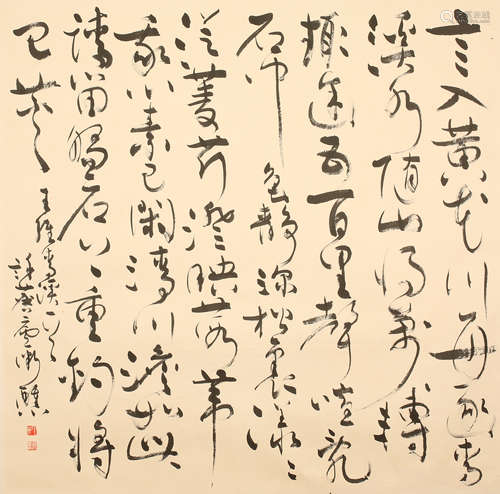 言入黃花川每逐青
溪水隨山將萬轉
趣途無百里聲喧亂
石中色靜深松裏漾漾
泛菱荇澄澄映葭葦
我心素已閑清川澹如此
請留盤石上垂釣將
已矣
王維青溪